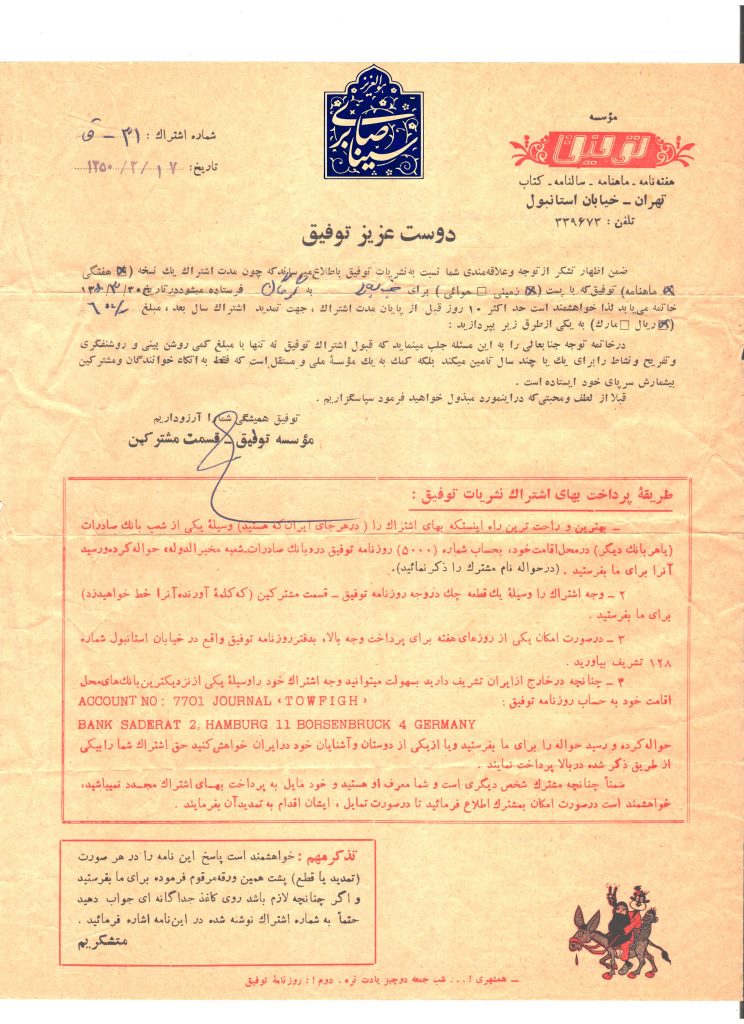 هوالعزیز
سینا صابری
مؤسسه
توفیق
هفته‌نامه ـ ماهنامه ـ سالنامه ـ کتاب
تهران ـ خیابان استانبول
تلفن : ۳۳۹۶۷۳
شماره اشتراك : ۳۱ - ق
تاریخ: ۱۳۵۰/۲/۱۷
دوست عزیز توفیق
ضمن اظهار تشکر از توجه وعلاقه‌مندی شما نسبت به نشریات توفیق باطلاع میرساند که چون مدت اشتراك یك نسخه (☒ هفتگی
☒ ماهنامه) توفیق که با پست (☒ زمینی ☐ هوائی) برای به فرستاده میشود در تاریخ
خاتمه می‌یابد لذا خواهشمند است حد اکثر ۱۰ روز قبل از پایان مدت اشتراك ، جهت تمدید اشتراك سال بعد ، مبلغ
(☒ ریال ☐ مارك) به یکی ازطرق زیر بپردازید :
درخاتمه توجه جنابعالی را به این مسئله جلب مینماید که قبول اشتراك توفیق نه تنها با مبلغ کمی روشن بینی و روشنفگری
وتفریح ونشاط رابرای یك یا چند سال تامین میکند بلکه کمك به یك مؤسسهٔ ملی و مستقل است که فقط به اتکاء خوانندگان ومشترکین
بیشمارش سرپای خود ایستاده است .
قبلا از لطف ومحبتی‌که دراینمورد مبذول خواهید فرمود سپاسگزاریم .
توفیق همیشگی شما را آرزوداریم
مؤسسه توفیق ـ قسمت مشترکین
طریقهٔ پرداخت بهای اشتراك نشریات توفیق :
ـ بهترین و راحت ترین راه اینستکه بهای اشتراك را (درهرجای ایران که هستید) وسیلهٔ یکی از شعب بانك صادرات
(یاهر بانك دیگر) درمحل اقامت خود، بحساب شماره (۵۰۰۰) روزنامه توفیق در«بانك صادرات.شعبه مخبرالدوله» حواله کرده‌ورسید
آنرا برای ما بفرستید . (درحواله نام مشترك را ذکر نمائید).
۲ ـ وجه اشتراك را وسیلهٔ یك قطعه چك دروجه روزنامه توفیق ـ قسمت مشترکین (که‌کلمهٔ آورنده آنرا خط خواهیدزد)
برای ما بفرستید .
۳ ـ درصورت امکان یکی از روزهای هفته برای پرداخت وجه بالا، بدفتر روزنامه توفیق واقع در خیابان استانبول شماره
۱۲۸ تشریف بیاورید .
۴ ـ چنانچه درخارج ازایران تشریف دارید بسهولت میتوانید وجه اشتراك خود راوسیلهٔ یکی از نزدیکترین بانك‌های محل
اقامت خود به حساب روزنامه توفیق :
ACCOUNT NO: 7701 JOURNAL «TOWFIGH»
BANK SADERAT 2, HAMBURG 11 BORSENBRUCK 4 GERMANY
حواله کرده و رسید حواله را برای ما بفرستید ویا ازیکی از دوستان وآشنایان خود درایران خواهش کنید حق اشتراك شما رابیکی
از طریق ذکر شده دربالا پرداخت نمایند .
ضمناً چنانچه مشترك شخص دیگری است و شما معرف او هستید و خود مایل به پرداخت بهـای اشتراك مجـدد نمیباشید،
خواهشمند است درصورت امکان بمشترك اطلاع فرمائید تا درصورت تمایل ، ایشان اقدام به تمدیدآن بفرمایند .
تذکر مهم : خواهشمند است پاسخ این نامه را در هر صورت
(تمدید یا قطع) پشت همین ورقه مرقوم فرموده برای ما بفرستید
و اگر چنانچه لازم باشد روی کاغذ جداگانه ای جواب دهید
حتماً به شماره اشتراك نوشته شده در این‌نامه اشاره فرمائید .
متشکریم
ـ همشهری ! . . . شب جمعه دوچیز یادت نره . دوم ! : روزنامهٔ توفیق